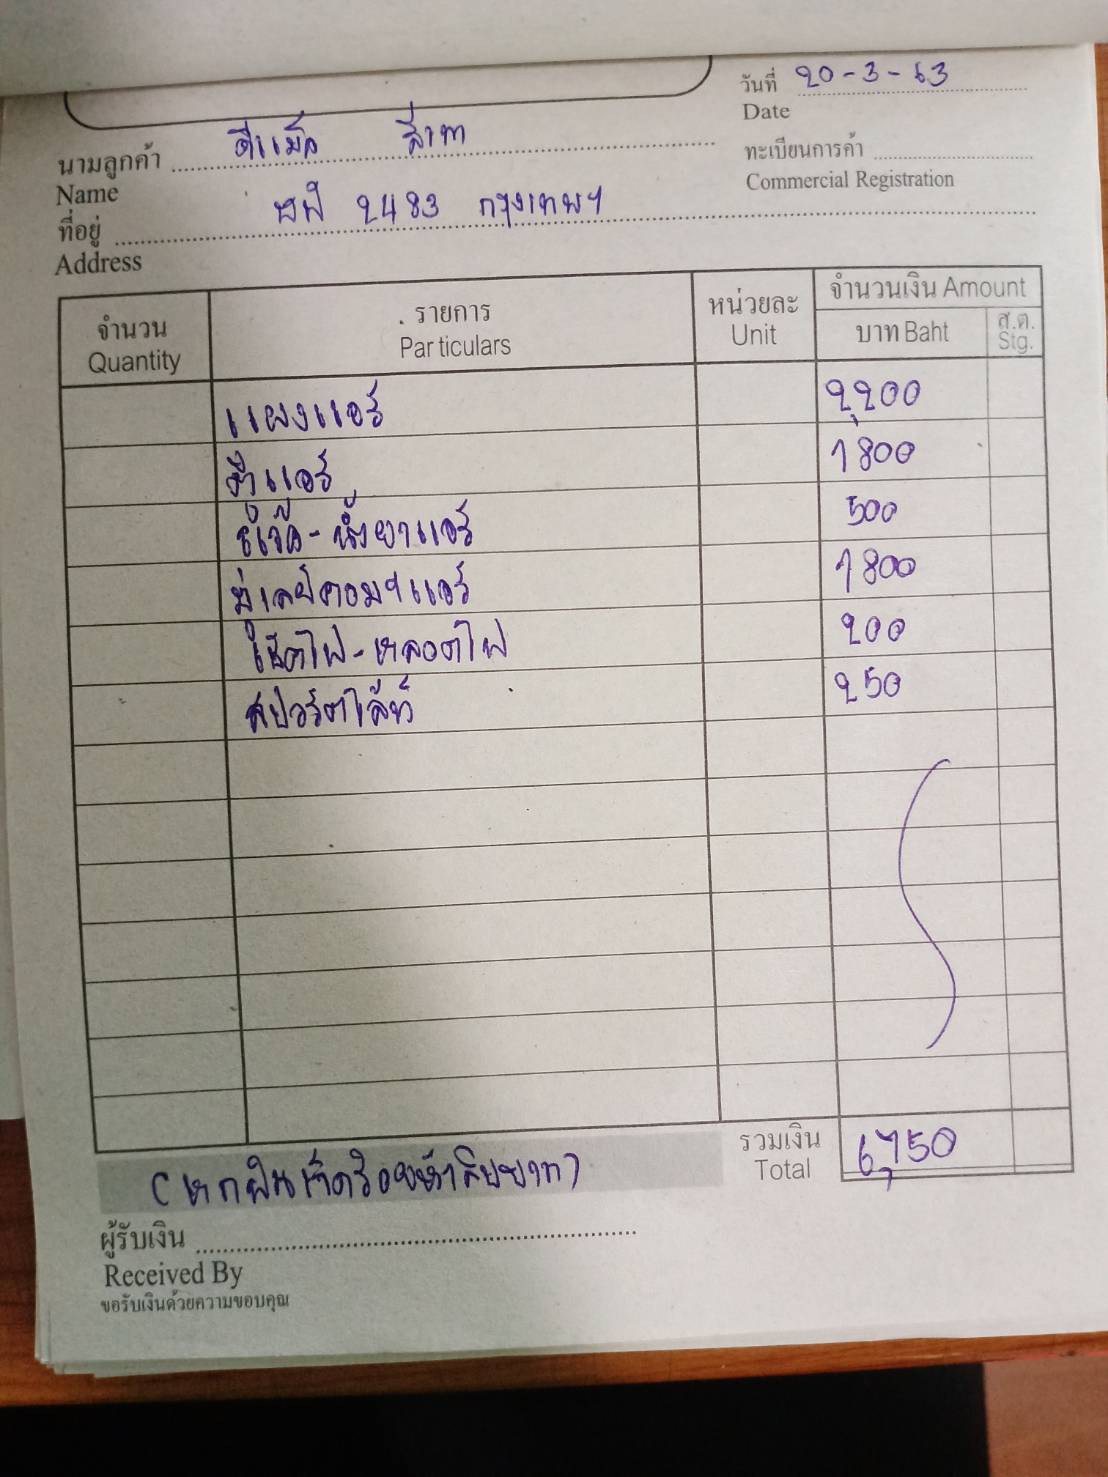 วันที่ 20-3-63
Date
นามลูกค้า ดีแม็ก สีเทา
Name
ทะเบียนการค้า
Commercial Registration
ที่อยู่ 2483 กรุงเทพฯ
Address
จำนวน รายการ หน่วยละ จำนวนเงิน Amount
Quantity Particulars Unit บาท Baht ส.ต. Stg.
แผงแอร์ 2,200
แอร์ 1800
น้ำยาแอร์ 500
มู่เลย์คอมฯแอร์ 1800
ไฟ-หลอดไฟ 200
สปอร์ตไล้ท์ 250
รวมเงิน 6,750
Total
(หกพันเจ็ดร้อยห้าสิบบาท)
ผู้รับเงิน
Received By
ขอรับเงินด้วยความขอบคุณ